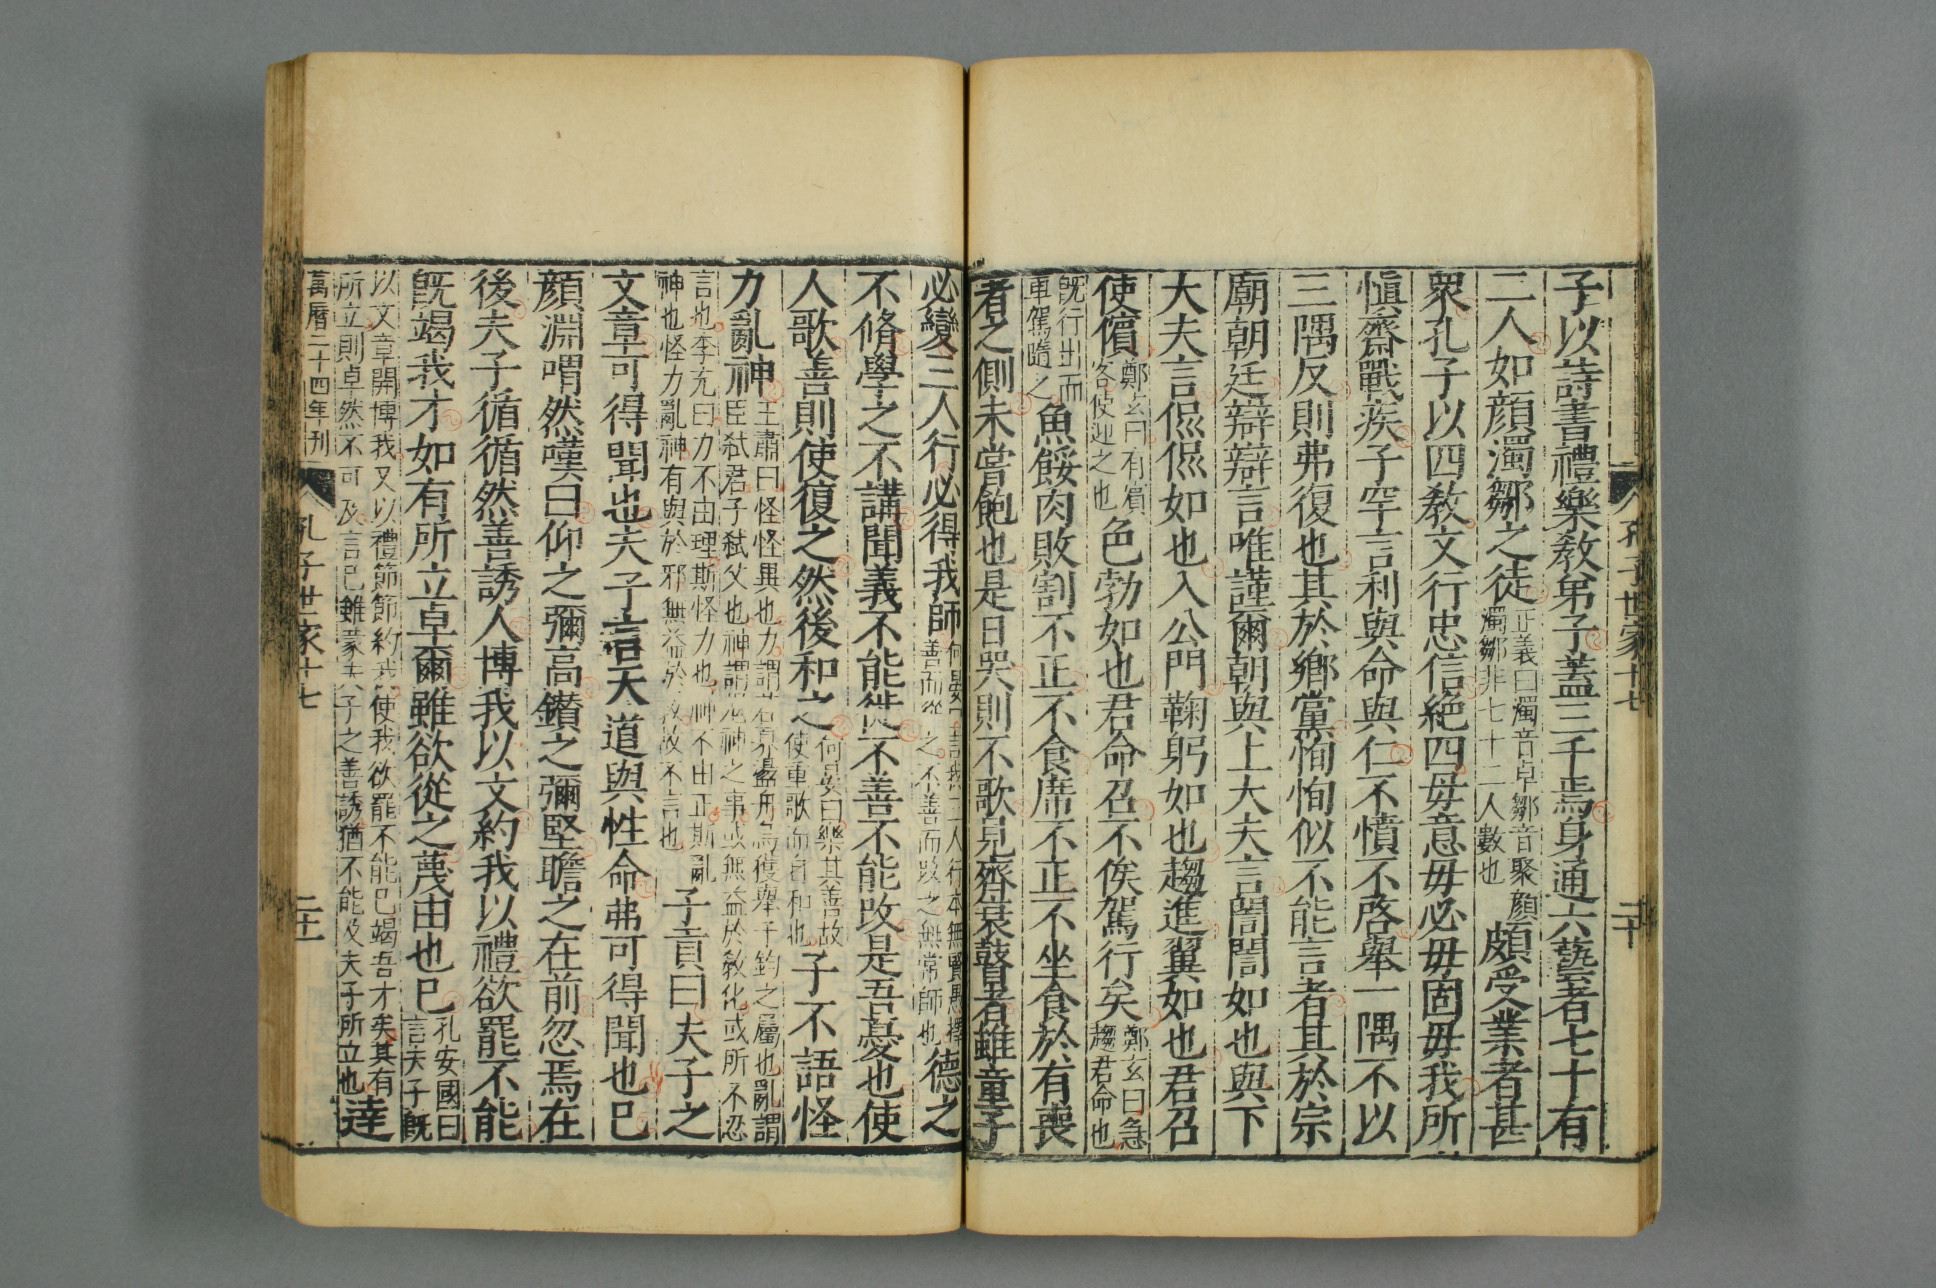 孔子世家十七
二十
子以詩書禮樂敎弟子蓋三千焉身通六藝者七十有
二人如顏濁鄒之徒正義曰濁音卓鄒音聚顏濁鄒非七十二人數也頗受業者甚
衆孔子以四敎文行忠信絕四毋意毋必毋固毋我所
愼齋戰疾子罕言利與命與仁不憤不啓舉一隅不以
三隅反則弗復也其於鄉黨恂恂似不能言者其於宗
廟朝廷辯辯言唯謹爾朝與上大夫言誾誾如也與下
大夫言侃侃如也入公門鞠躬如也趨進翼如也君召
使儐鄭玄曰有賓客使迎之也色勃如也君命召不俟駕行矣鄭玄曰急趨君命也
旣行出而車駕隨之魚餒肉敗割不正不食席不正不坐食於有喪
者之側未嘗飽也是日哭則不歌見齊衰瞽者雖童子
必變三人行必得我師何晏曰言我三人行本無賢愚擇善而從之不善而改之無常師也德之
不脩學之不講聞義不能徙不善不能改是吾憂也使
人歌善則使復之然後和之何晏曰樂其善故使重歌而自和也子不語怪
力亂神王肅曰怪怪異也力謂若奡盪舟烏獲舉千鈞之屬也亂謂臣弒君子弒父也神謂鬼神之事或無益於敎化或所不忍
言也李充曰力不由理斯怪力也神不由正斯亂神也怪力亂神有與於邪無益於敎故不言也子貢曰夫子之
文章可得聞也夫子言天道與性命弗可得聞也已
顏淵喟然嘆曰仰之彌高鑽之彌堅瞻之在前忽焉在
後夫子循循然善誘人博我以文約我以禮欲罷不能
旣竭我才如有所立卓爾雖欲從之蔑由也已孔安國曰言夫子旣
以文章開博我又以禮節節約我使我欲罷不能已竭吾才矣其有所立則卓然不可及言已雖蒙夫子之善誘猶不能及夫子所立也達
萬曆二十四年刊
孔子世家十七
二十一